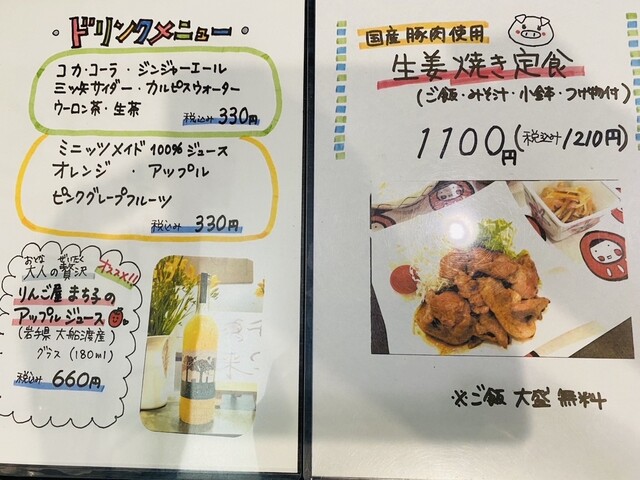 ・ドリンクメニュー・
コカ・コーラ・ジンジャーエール
三ッ矢サイダー・カルピスウォーター
ウーロン茶・生茶 税込み 330円
ミニッツメイド 100% ジュース
オレンジ ・ アップル
ピンクグレープフルーツ
税込み 330円
おとな ぜいたく
大人の贅沢 オススメ!!
りんご屋 まち子の
アップルジュース
(岩手県 大船渡産)
グラス (180ml)
税込み 660円
国産豚肉使用
生姜焼き定食
(ご飯・みそ汁・小鉢・つけ物付)
1100円(税込み1210円)
※ご飯 大盛 無料